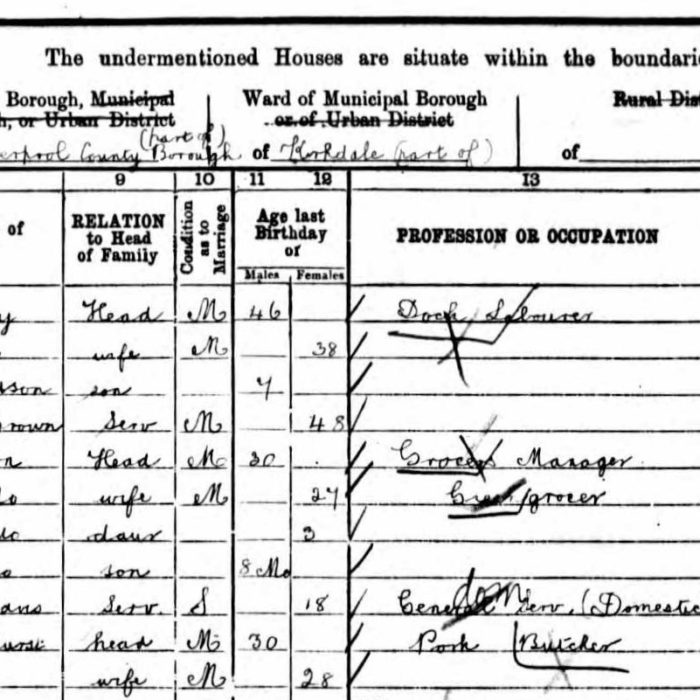 The undermentioned Houses are situate within the boundarie
Borough, Municipal Ward of Municipal Borough Rural Dist
h, or Urban District or of Urban District
(part of)
erpool County Borough of Kirkdale (part of) of
9 10 11 12 13
of RELATION to Head of Family Condition as to Marriage Age last Birthday of PROFESSION OR OCCUPATION
Males Females
y Head M 46 Dock Labourer
wife M 38
son 7
rown Serv M 48
n Head M 30 Grocers Manager
do wife M 27 Green grocer
do daur 3
o son 8 Mo
ans Serv. S 18 General Serv. (Domestic
dom
urst head M 30 Pork Butcher
wife M 28